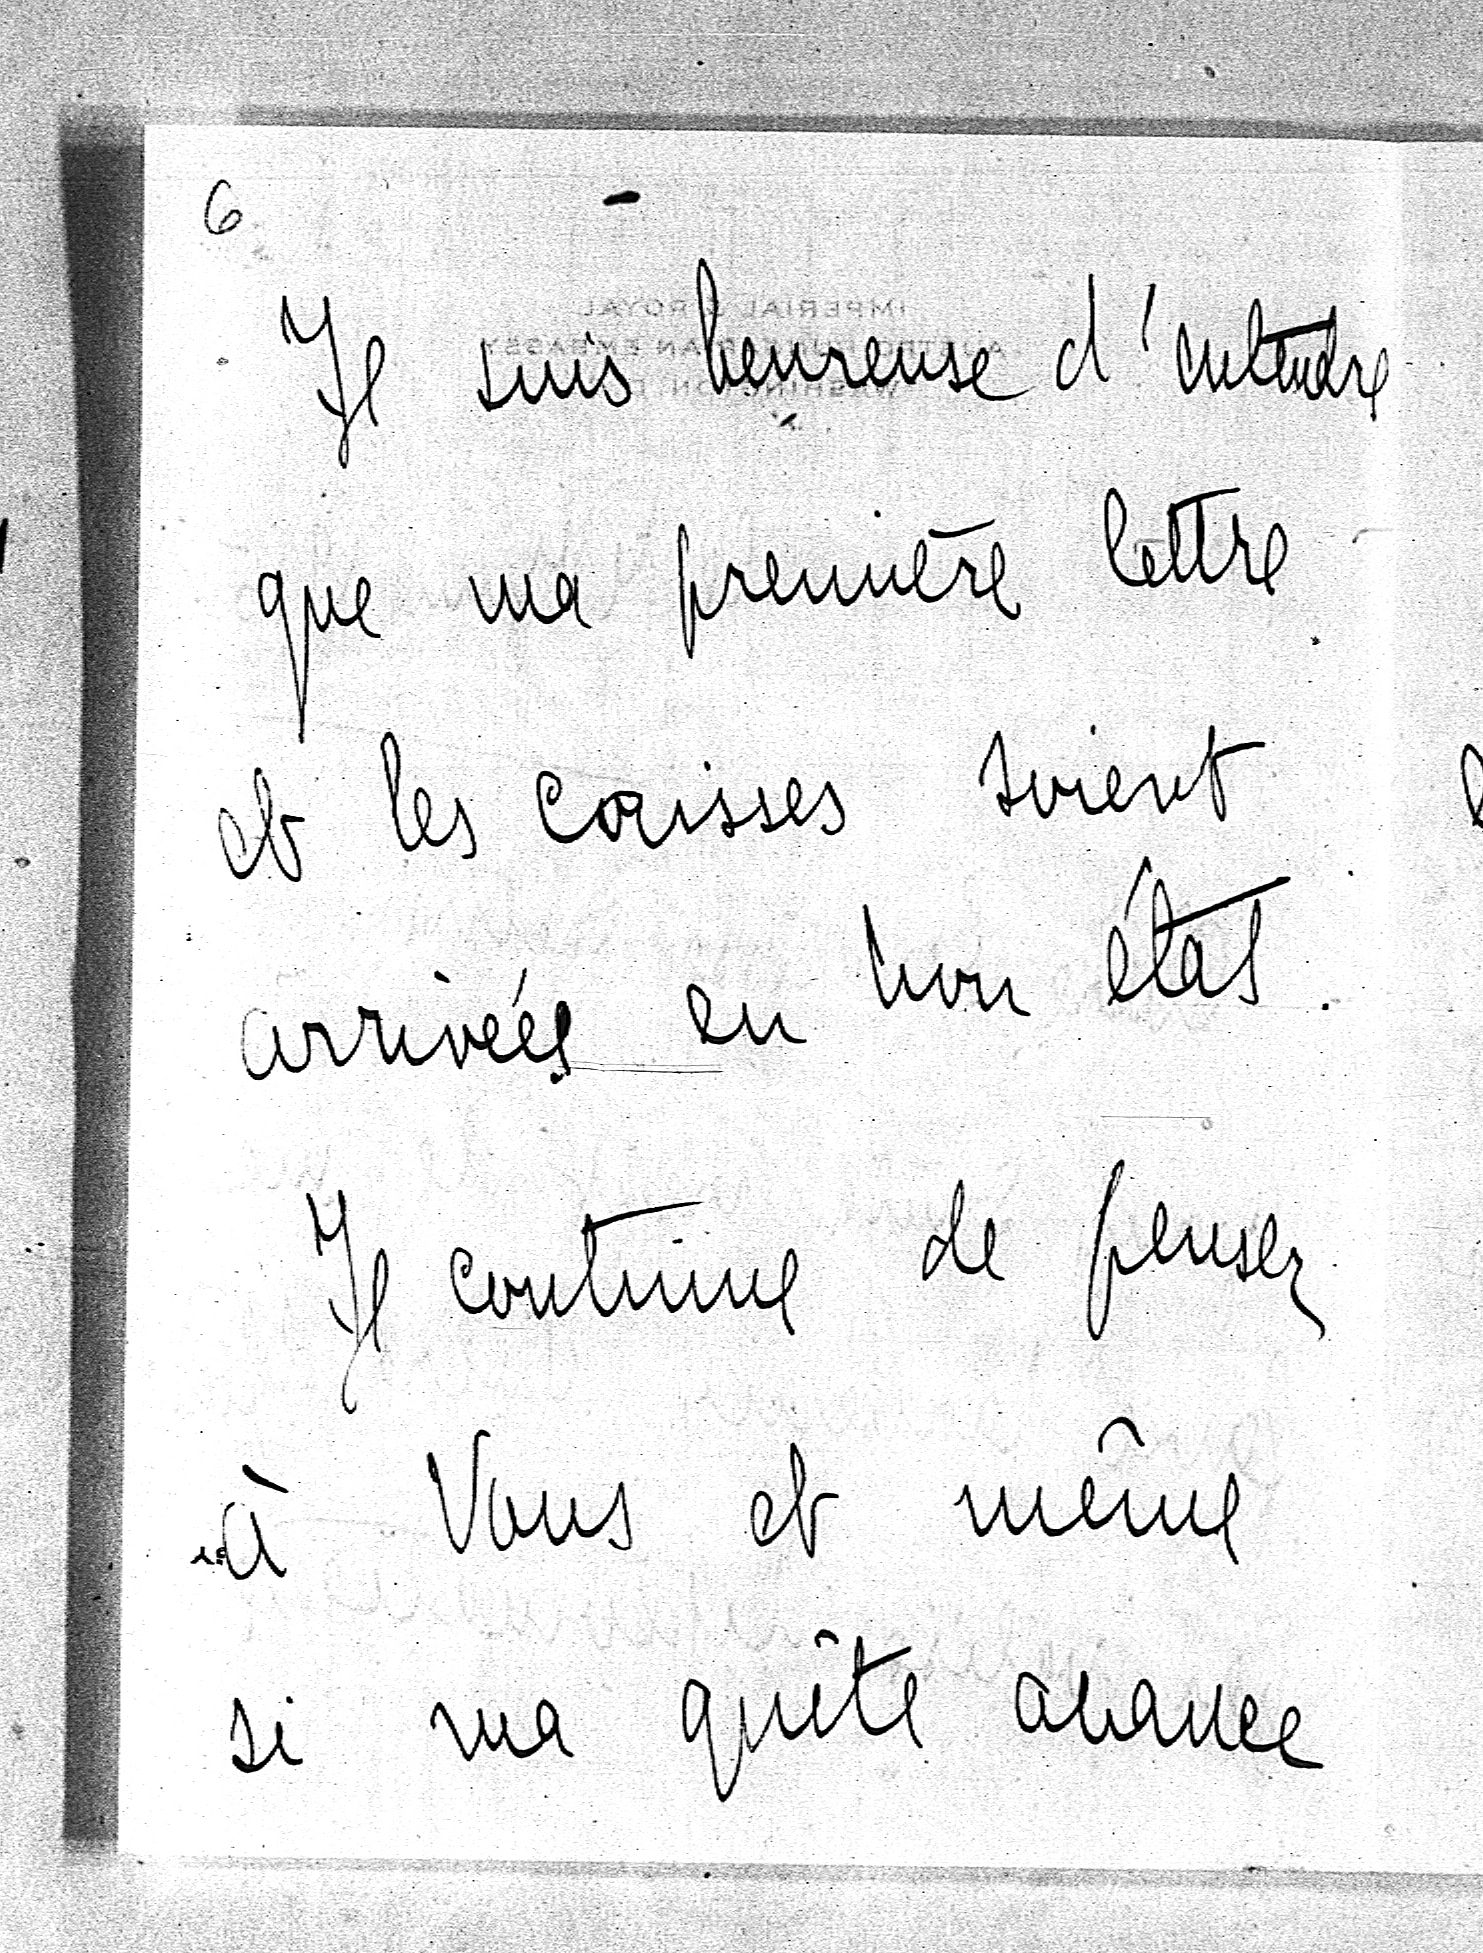 6
Je suis heureuse d'entendre
que ma première lettre
et les caisses soient
arrivées en bon état.
Je continue de penser
à Vous et même
si ma quête avance